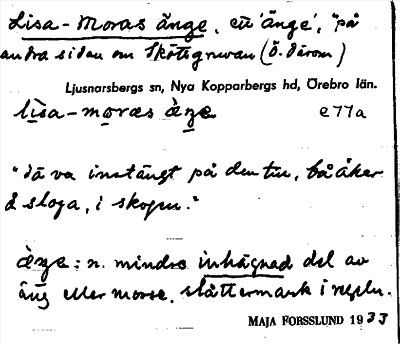 Lisa-Moras änge, ett 'änge', "på
andra sidan om Skötegruvan (Ö. därom)
Ljusnarsbergs sn, Nya Kopparbergs hd, Örebro län.
lisa-moras äŋe e77a
"dä va instängt på den tin, både åker
å sloga, i skogen."
äŋe: n. mindre inhägnad del av
äng eller mosse, slåttermark i regeln.
MAJA FORSSLUND 1933